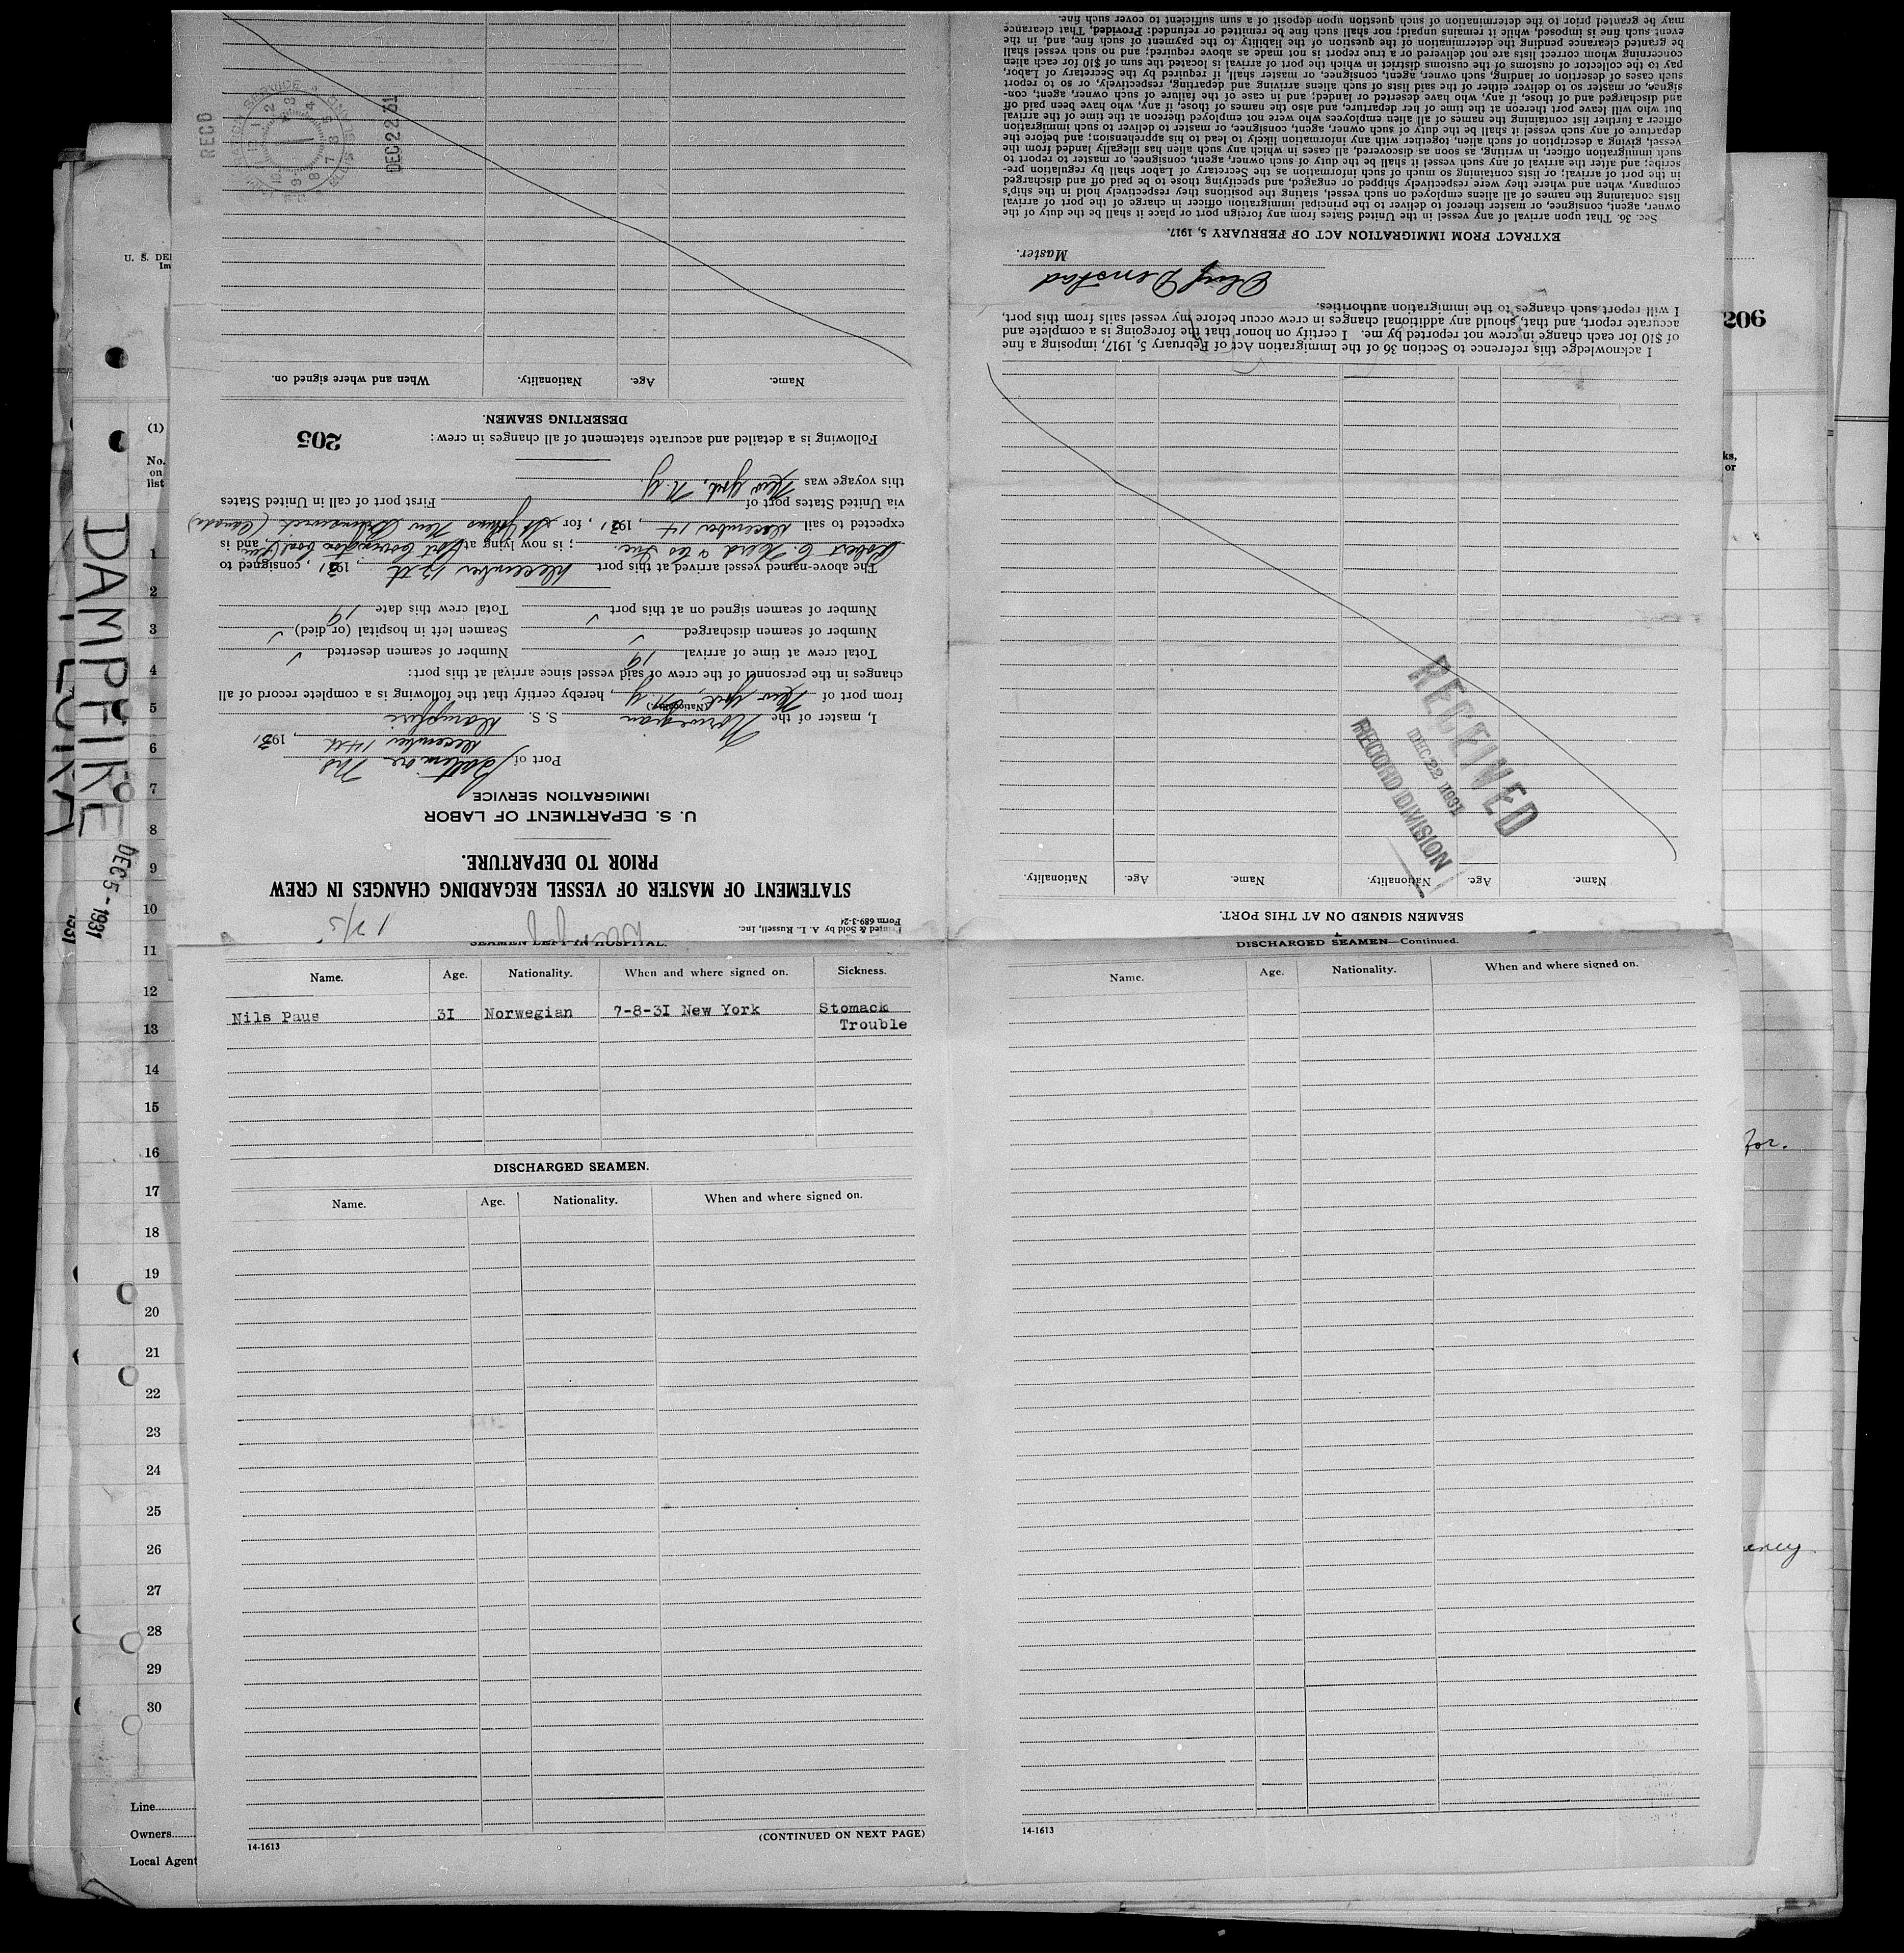 206
U. S. DE
Im
(1)
No.
on
list
ks,
or
1
2
3
4
5
6
7
8
9
10
11
12
13
14
15
16
17
18
19
20
21
22
23
24
25
26
27
28
29
30
Line
Owners
Local Agent
DAMPFIRE
DEC 5 - 1931
1931
for.
ency
Printed & Sold by A. L. Russell, Inc.
Form 689-3-24
STATEMENT OF MASTER OF VESSEL REGARDING CHANGES IN CREW
PRIOR TO DEPARTURE.
U. S. DEPARTMENT OF LABOR
IMMIGRATION SERVICE
Port of Baltimore Md.
December 14th, 1931
I, master of the Norwegian S. S. Dampfire
(Nationality)
from port of New York, N.Y., hereby certify that the following is a complete record of all
changes in the personnel of the crew of said vessel since arrival at this port:
Total crew at time of arrival 19 Number of seamen deserted ✓
Number of seamen discharged ✓ Seamen left in hospital (or died) ✓
Number of seamen signed on at this port ✓ Total crew this date 19
The above-named vessel arrived at this port December 13th, 1931, consigned to
Robert C. Herd & Co Inc.; is now lying at Port Covington Coal Pier, and is
expected to sail December 14, 1931, for St Johns New Brunswick (Canada)
via United States port of First port of call in United States
this voyage was New York, N.Y.
Following is a detailed and accurate statement of all changes in crew:
205
DESERTING SEAMEN.
Name. Age. Nationality. When and where signed on.
RECD
DEC 22 31
SEAMEN SIGNED ON AT THIS PORT.
Name. Age. Nationality. Name. Age. Nationality.
RECEIVED
DEC 22 1931
RECORD DIVISION
I acknowledge this reference to Section 36 of the Immigration Act of February 5, 1917, imposing a fine
of $10 for each change in crew not reported by me. I certify on honor that the foregoing is a complete and
accurate report, and that, should any additional changes in crew occur before my vessel sails from this port,
I will report such changes to the immigration authorities.
Master.
EXTRACT FROM IMMIGRATION ACT OF FEBRUARY 5, 1917.
Sec. 36. That upon arrival of any vessel in the United States from any foreign port or place it shall be the duty of the
owner, agent, consignee, or master thereof to deliver to the principal immigration officer in charge of the port of arrival
lists containing the names of all aliens employed on such vessel, stating the positions they respectively hold in the ship's
company, when and where they were respectively shipped or engaged, and specifying those to be paid off and discharged
in the port of arrival; or lists containing so much of such information as the Secretary of Labor shall by regulation pre-
scribe; and after the arrival of any such vessel it shall be the duty of such owner, agent, consignee, or master to report to
such immigration officer, in writing, as soon as discovered, all cases in which any such alien has illegally landed from the
vessel, giving a description of such alien, together with any information likely to lead to his apprehension; and before the
departure of any such vessel it shall be the duty of such owner, agent, consignee, or master to deliver to such immigration
officer a further list containing the names of all alien employees who were not employed thereon at the time of the arrival
but who will leave port thereon at the time of her departure, and also the names of those, if any, who have been paid off
and discharged and of those, if any, who have deserted or landed; and in case of the failure of such owner, agent, con-
signee, or master so to deliver either of the said lists of such aliens arriving and departing, respectively, or so to report
such cases of desertion or landing, such owner, agent, consignee, or master shall, if required by the Secretary of Labor,
pay to the collector of customs of the customs district in which the port of arrival is located the sum of $10 for each alien
concerning whom correct lists are not delivered or a true report is not made as above required; and no such vessel shall
be granted clearance pending the determination of the question of the liability to the payment of such fine, and, in the
event such fine is imposed, while it remains unpaid; nor shall such fine be remitted or refunded: Provided, That clearance
may be granted prior to the determination of such question upon deposit of a sum sufficient to cover such fine.
SEAMEN LEFT IN HOSPITAL.
Name. Age. Nationality. When and where signed on. Sickness.
Nils Paus 3I Norwegian 7-8-3I New York Stomack
Trouble
DISCHARGED SEAMEN.
Name. Age. Nationality. When and where signed on.
14-1613
(CONTINUED ON NEXT PAGE)
DISCHARGED SEAMEN—Continued.
Name. Age. Nationality. When and where signed on.
14-1613